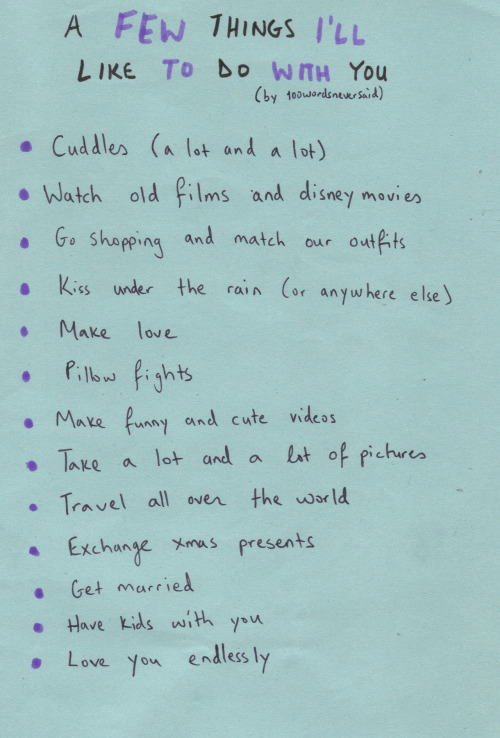 A FEW THINGS I'LL
LIKE TO DO WITH YOU
(by 100wordsneversaid)
• Cuddles (a lot and a lot)
• Watch old films and disney movies
• Go shopping and match our outfits
• Kiss under the rain (or anywhere else)
• Make love
• Pillow fights
• Make funny and cute videos
• Take a lot and a lot of pictures
• Travel all over the world
• Exchange xmas presents
• Get married
• Have kids with you
• Love you endlessly